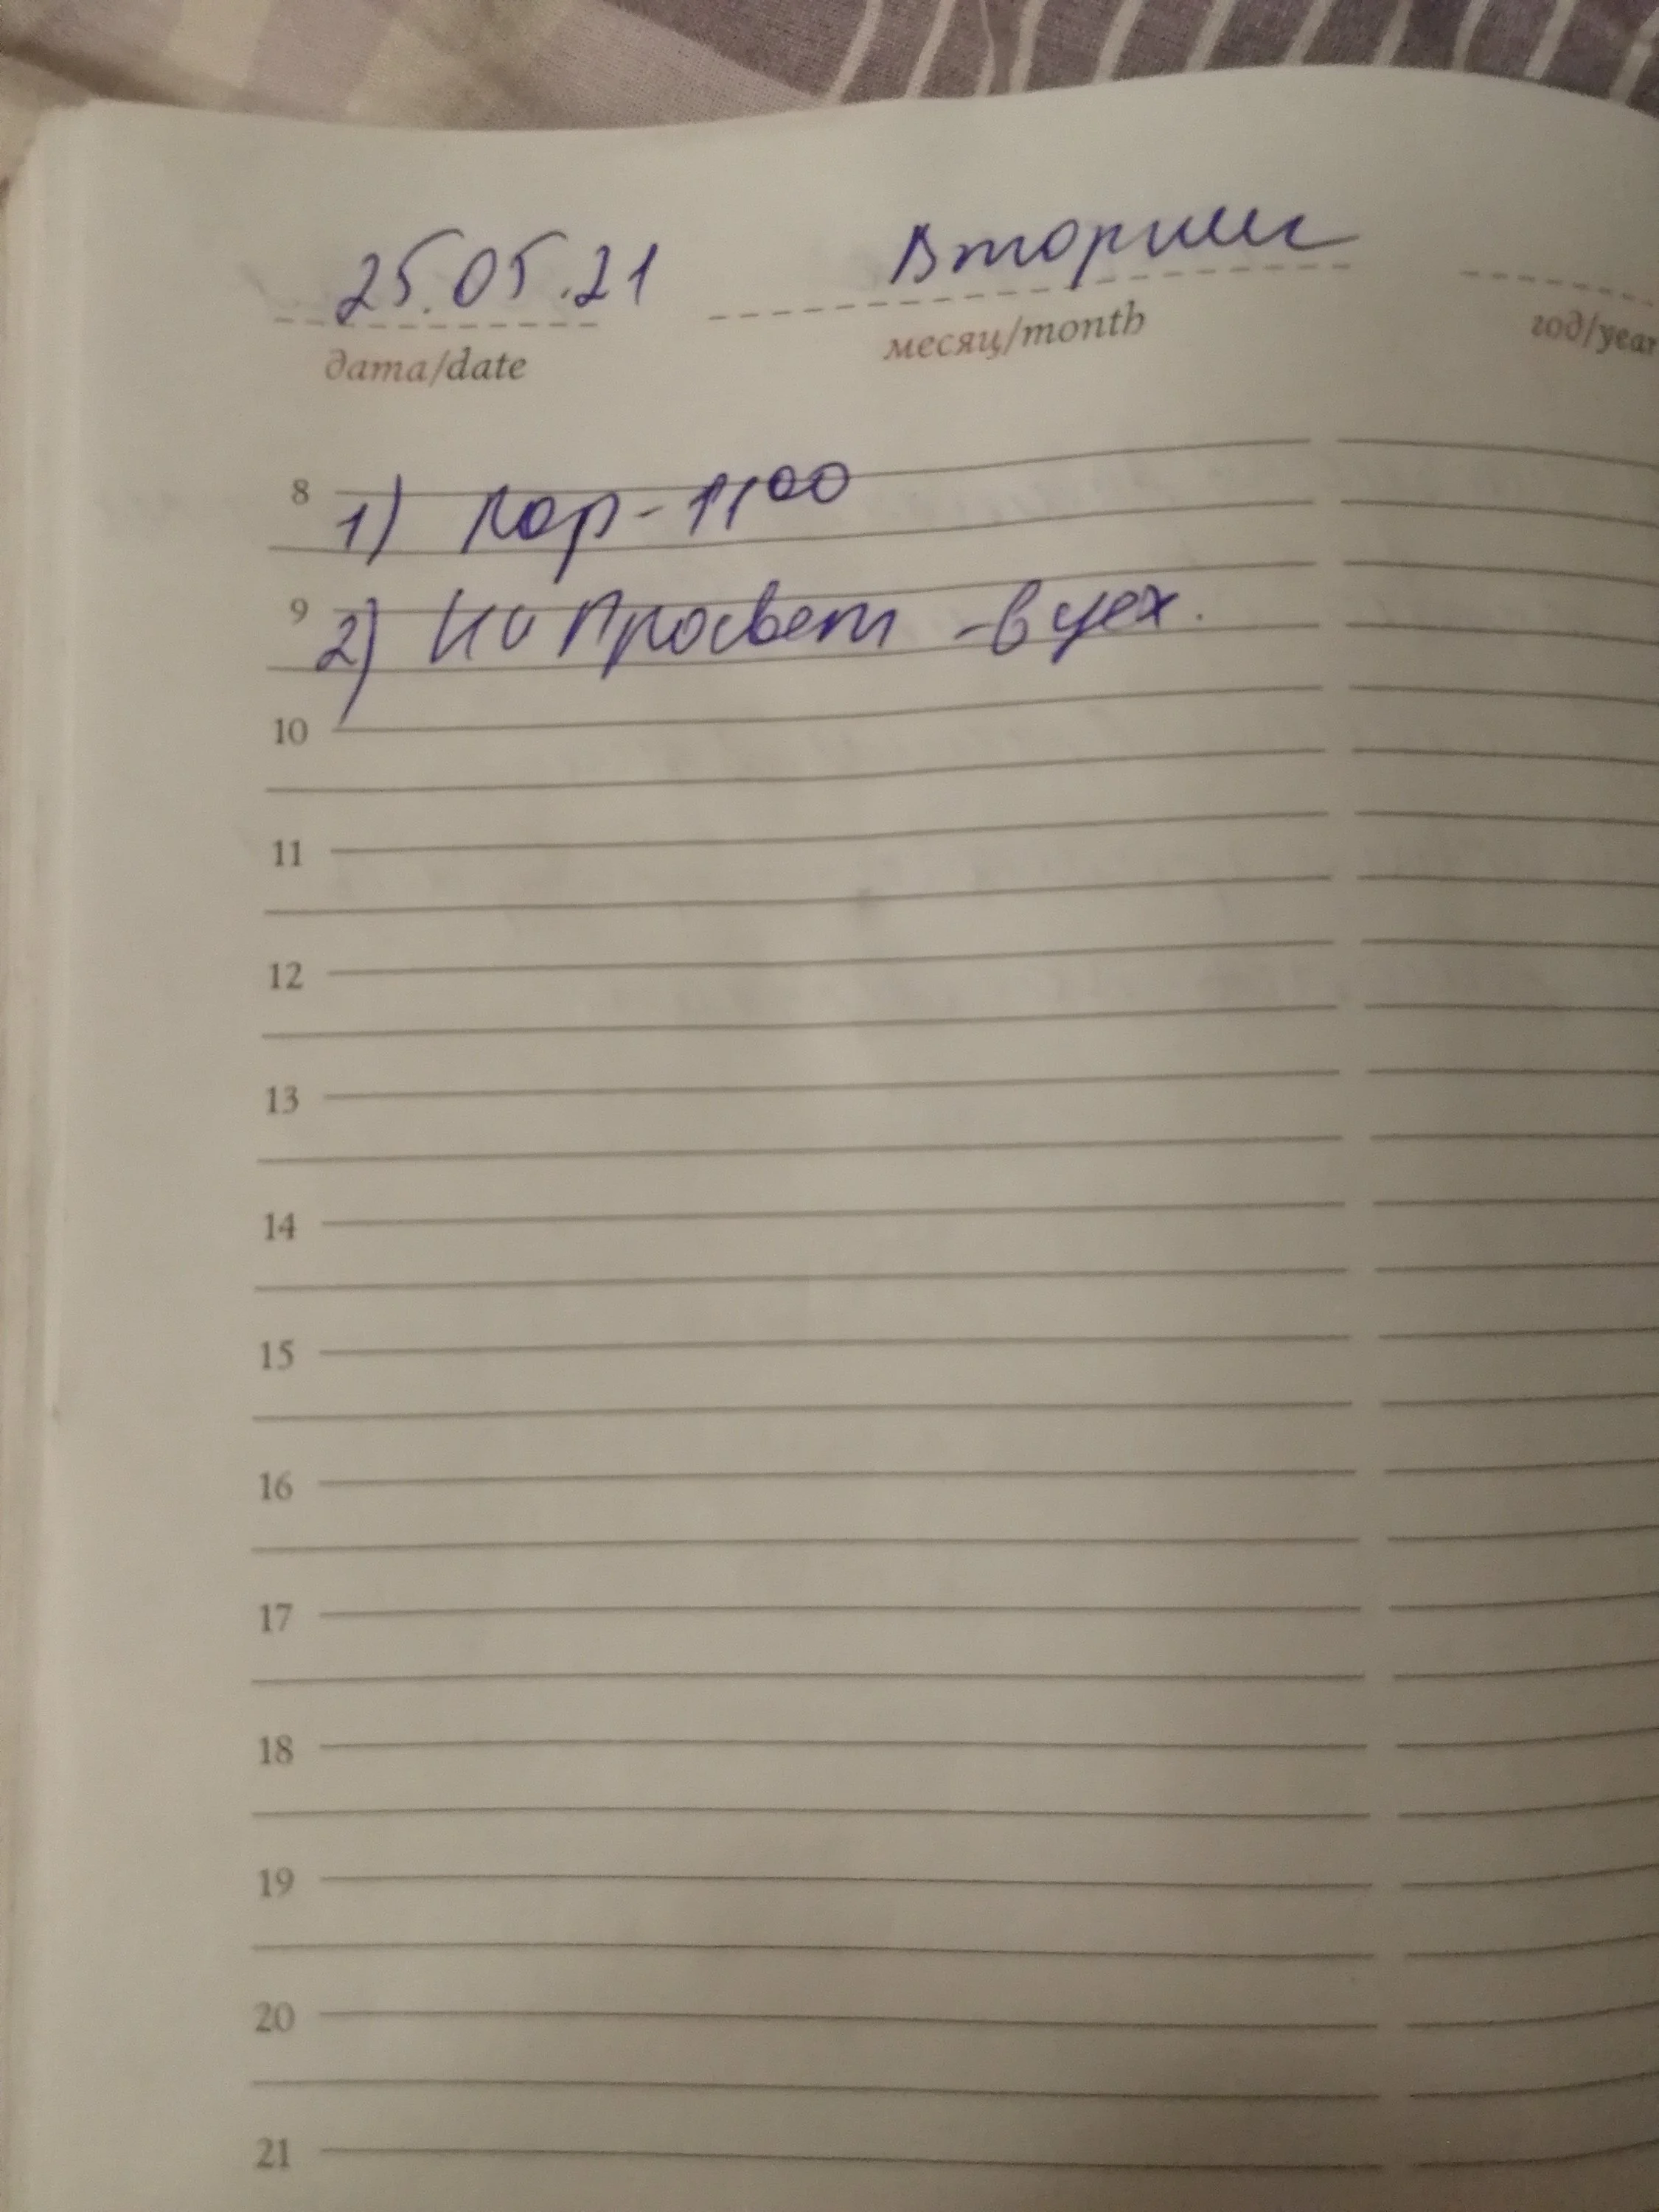 25.05.21 Вторник
дата/date месяц/month год/year
8 1) Кор - 11 00
9 2) Ио Просвет - в цех.
10
11
12
13
14
15
16
17
18
19
20
21